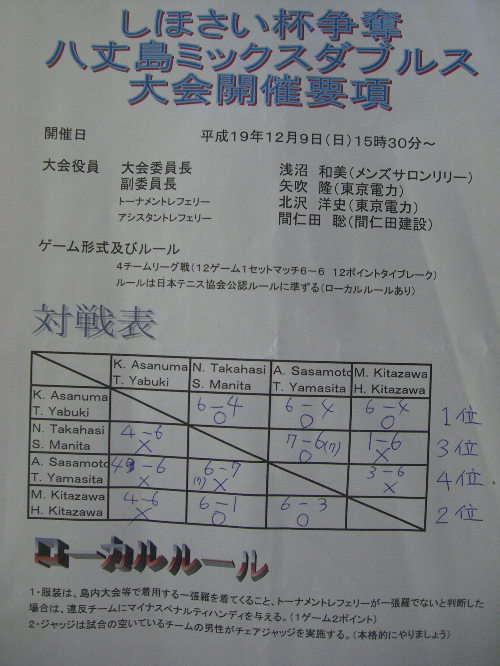 しほさい杯争奪
八丈島ミックスダブルス
大会開催要項
開催日 平成19年12月9日(日)15時30分～
大会役員 大会委員長 浅沼 和美(メンズサロンリリー)
副委員長 矢吹 隆(東京電力)
トーナメントレフェリー 北沢 洋史(東京電力)
アシスタントレフェリー 間仁田 聡(間仁田建設)
ゲーム形式及びルール
4チームリーグ戦(12ゲーム1セットマッチ6－6 12ポイントタイブレーク)
ルールは日本テニス協会公認ルールに準ずる(ローカルルールあり)
対戦表
K. Asanuma N. Takahasi A. Sasamoto M. Kitazawa
T. Yabuki S. Manita T. Yamasita H. Kitazawa
K. Asanuma 6-4 6-4 6-4
T. Yabuki O O O 1位
N. Takahasi 4-6 7-6(7) 1-6
S. Manita X O X 3位
A. Sasamoto 4-6 6-7 3-6
T. Yamasita X (7) X X 4位
M. Kitazawa 4-6 6-1 6-3
H. Kitazawa X O O 2位
ローカルルール
1・服装は、島内大会等で着用する一張羅を着てくること、トーナメントレフェリーが一張羅でないと判断した
場合は、違反チームにマイナスペナルティハンディを与える。(1ゲーム2ポイント)
2・ジャッジは試合の空いているチームの男性がチェアジャッジを実施する。(本格的にやりましょう)